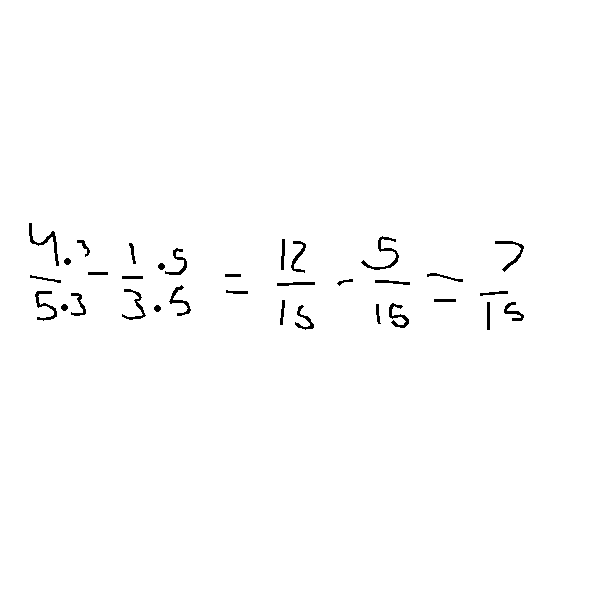 4·3/5·3 - 1·5/3·5 = 12/15 - 5/15 = 7/15